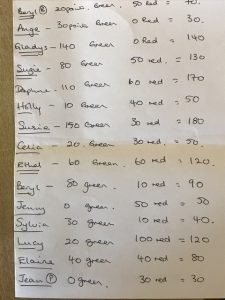 Beryl Ⓑ 20 points. Green. 50 red = 70.
Ange - 30 points Green 0 Red = 30.
Gladys - 140 Green 0 Red = 140
Suzie - 80 Green 50 red. = 130
Daphne - 110 Green 60 red = 170
Holly - 10 Green 40 red = 50
Susie - 150 Green 30 red = 180
Celia - 20. Green 30 red. = 50.
Ethel - 60 Green. 60 red = 120.
Beryl - 80 green. 10 red = 90
Jenny 0 green. 50 red = 50
Sylvia 30 green 10 red = 40.
Lucy 20 green 100 red = 120
Elaine 40 green 40 red = 80
Jean Ⓟ 0 green. 30 red = 30